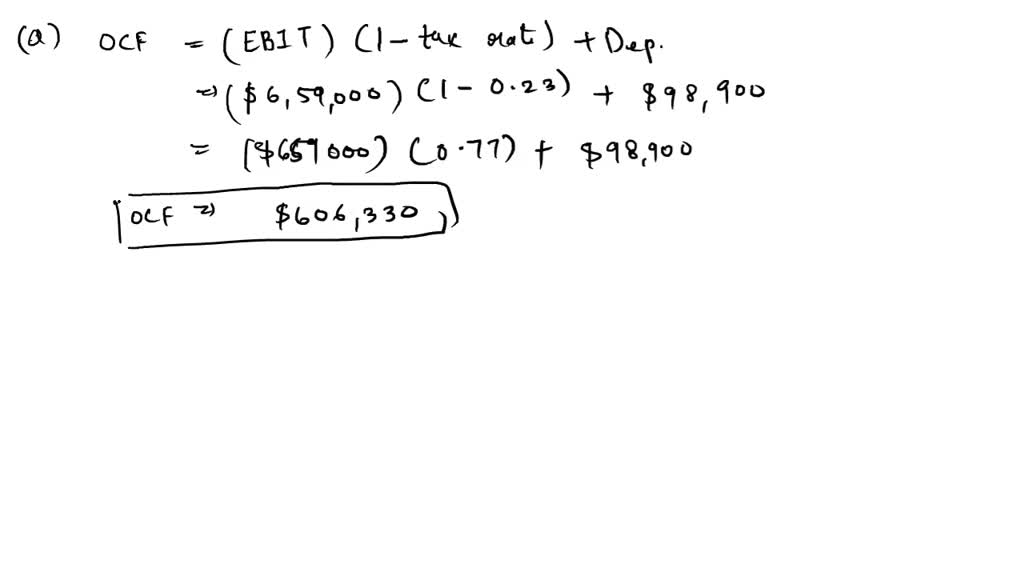 (a) OCF = (EBIT) (1 - tax rate) + Dep.
=> ($6,59,000) (1 - 0.23) + $98,900
= ($659000) (0.77) + $98,900
OCF => $606,330